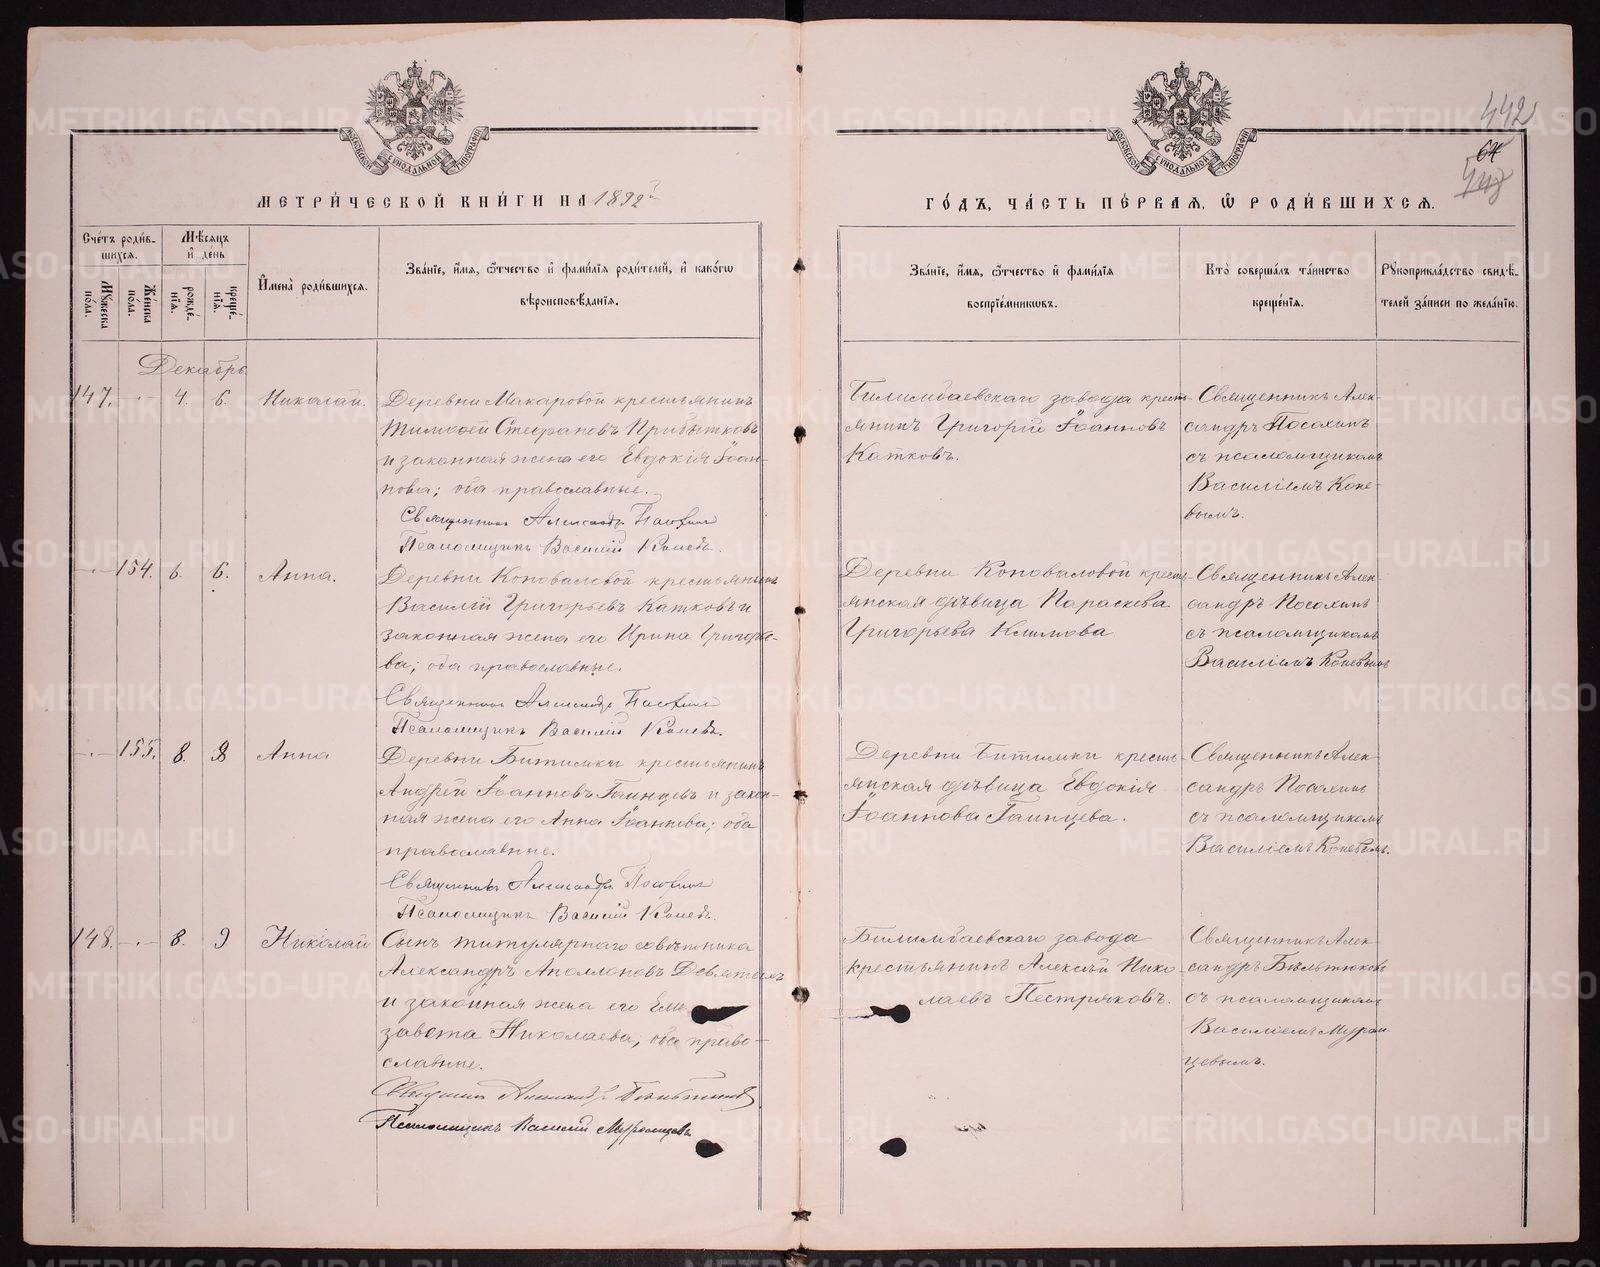 442
64
МЕТРИ́ЧЕСКОЙ КНИ́ГИ НА 1892й
ГО́ДЪ, ЧА́СТЬ ПЕ́РВАЯ, Ѿ РОДИ́ВШИХСЯ.
МОСКОВСКОЙ СѴНОДАЛЬНОЙ ТИПОГРАФІИ
МОСКОВСКОЙ СѴНОДАЛЬНОЙ ТИПОГРАФІИ
Сче́тъ роди́в-
шихся.
Му́жеска по́ла.
Же́нска по́ла.
Мѣ́сяцъ
и҆ де́нь
рожде́нїя.
креще́нїя.
И҆мена̀ роди́вшихся.
Зва́нїе, и҆́мя, ѻ҆́тчество и҆ фами́лїѧ роди́телей, и҆ како́гѡ
вѣроисповѣ́данїя.
Зва́нїе, и҆́мя, ѻ҆́тчество и҆ фами́лїя
воспрїе́мникѡвъ.
Кто̀ соверша́лъ та́инство
креще́нїя.
Рꙋкоприкла́дство свидѣ́-
телей за́писи по жела́нїю.
Декабрь
147. -·- 4. 6. Николай.
Деревни Макаровой крестьянинъ
Тимоѳей Стефановъ Прибытковъ
и законная жена его Евдокія Іоан-
нова; оба православные.
Священникъ Александръ Посохинъ
Псаломщикъ Василій Коневъ.
Билимбаевскаго завода крест-
янинъ Григорій Іоанновъ
Катковъ.
Священникъ Алек-
сандръ Посохинъ
съ псаломщикомъ
Василіемъ Коне-
вымъ.
-·- 154. 6. 6. Анна.
Деревни Коноваловой крестьянинъ
Василій Григорьевъ Катковъ и
законная жена его Ирина Григорье-
ва; оба православные.
Священникъ Александръ Посохинъ
Псаломщикъ Василій Коневъ.
Деревни Коноваловой кресть-
янская дѣвица Параскева
Григорьева Климова
Священникъ Алек-
сандръ Посохинъ
съ псаломщикомъ
Василіемъ Коневымъ
-·- 155. 8. 8 Анна
Деревни Битимки крестьянинъ
Андрей Іоанновъ Галицевъ и закон-
ная жена его Анна Іоаннова; оба
православные.
Священникъ Александръ Посохинъ
Псаломщикъ Василій Коневъ.
Деревни Битимки кресть-
янская дѣвица Евдокія
Іоаннова
Священникъ Алек-
сандръ Посохинъ
съ псаломщикомъ
Василіемъ Коневымъ.
148. -·- 8. 9 Николай
Сынъ титулярнаго совѣтника
Александръ Аполлоновъ
и законная жена его Ели
завета Николаева; оба право-
славные.
Священникъ Александръ Бѣльтюковъ
Псаломщикъ Василій Муромцевъ
Билимбаевскаго завода
крестьянинъ Алексѣй Нико-
лаевъ Пестряковъ.
Священникъ Алек-
сандръ Бѣльтюковъ
съ псаломщикомъ
Василіемъ Муром
цевымъ.
METRIKI.GASO-URAL.RU